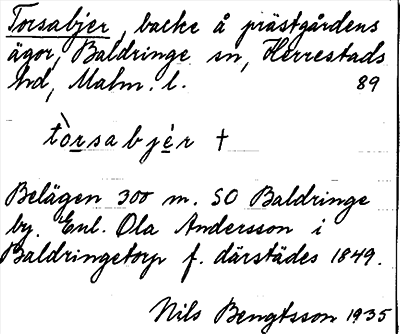 Torsabjer, backe å prästgårdens
ägor, Baldringe sn, Herrestads
hd, Malm. l. 89
tòrsabjér +
Belägen 300 m. SO Baldringe
by. Enl. Ola Andersson i
Baldringetorp f. därstädes 1849.
Nils Bengtsson 1935